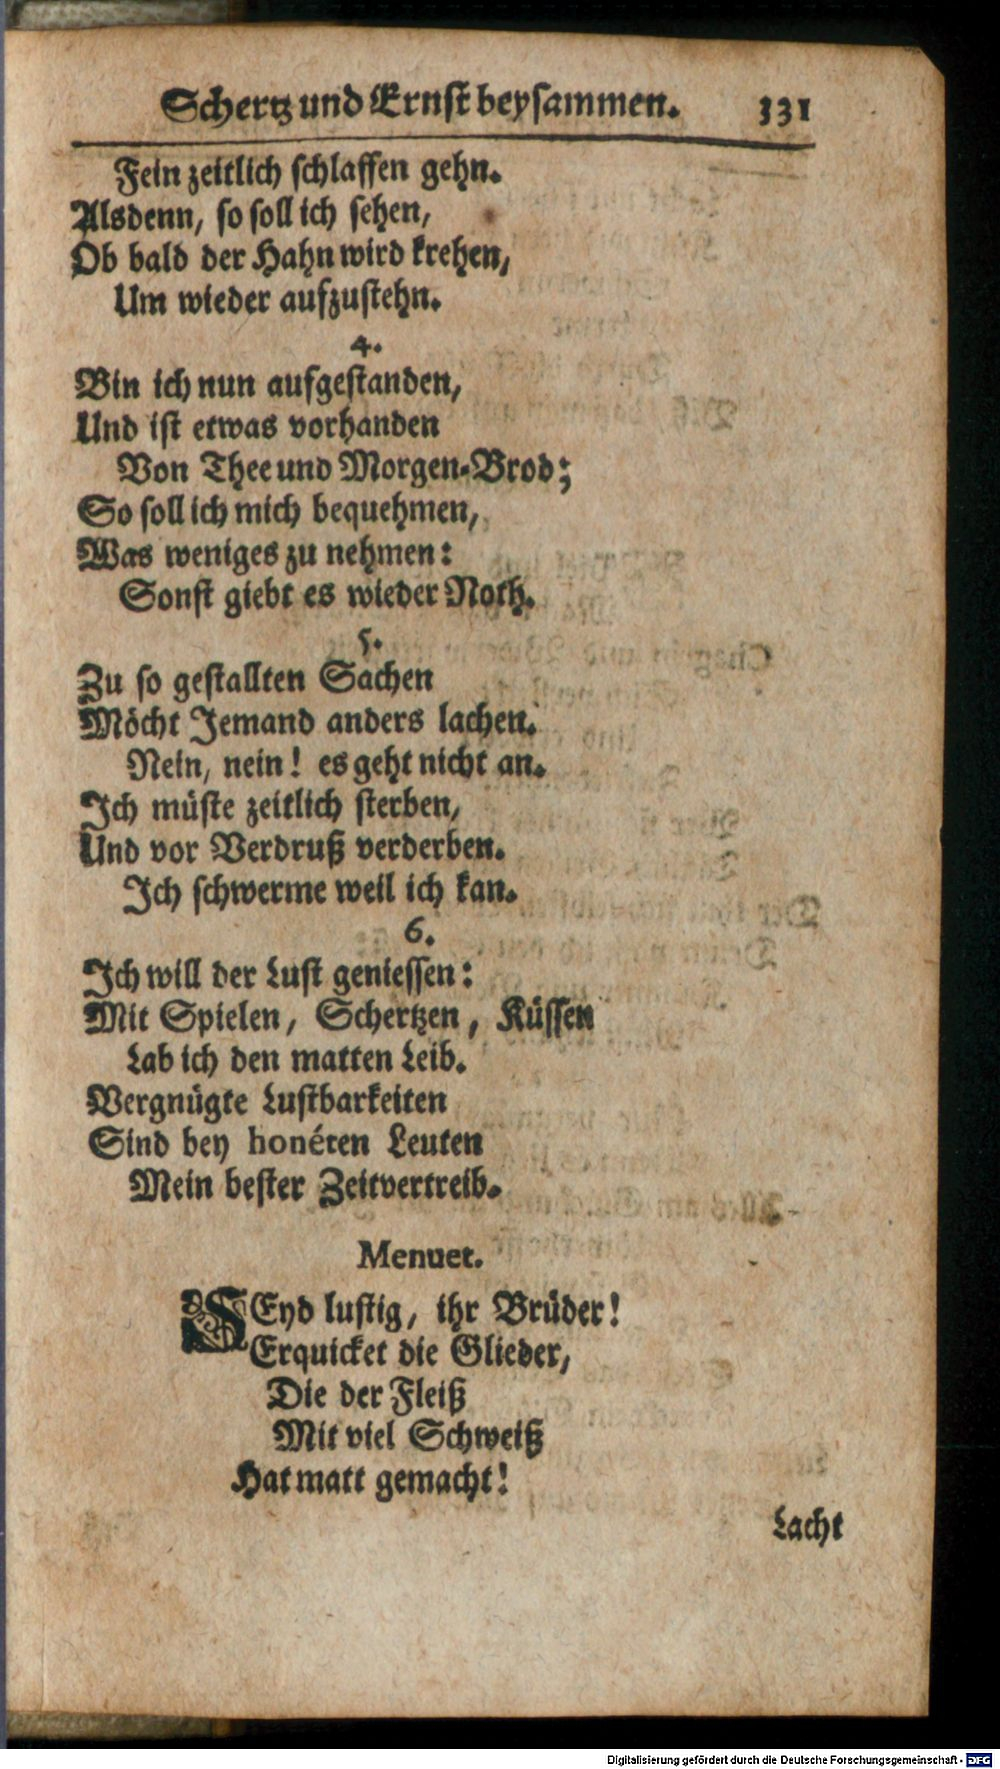 Schertz und Ernst beysammen. 331
Fein zeitlich schlaffen gehn.
Alsdenn, so soll ich sehen,
Ob bald der Hahn wird krehen,
Um wieder aufzustehn.
4.
Bin ich nun aufgestanden,
Und ist etwas vorhanden
Von Thee und Morgen-Brod;
So soll ich mich bequehmen,
Was weniges zu nehmen:
Sonst giebt es wieder Noth.
5.
Zu so gestallten Sachen
Möcht Jemand anders lachen.
Nein, nein! es geht nicht an.
Ich müste zeitlich sterben,
Und vor Verdruß verderben.
Ich schwerme weil ich kan.
6.
Ich will der Lust geniessen:
Mit Spielen, Schertzen, Küssen
Lab ich den matten Leib.
Vergnügte Lustbarkeiten
Sind bey honéten Leuten
Mein bester Zeitvertreib.
Menuet.
SEyd lustig, ihr Brüder!
Erquicket die Glieder,
Die der Fleiß
Mit viel Schweiß
Hat matt gemacht!
Lacht
Digitalisierung gefördert durch die Deutsche Forschungsgemeinschaft - DFG